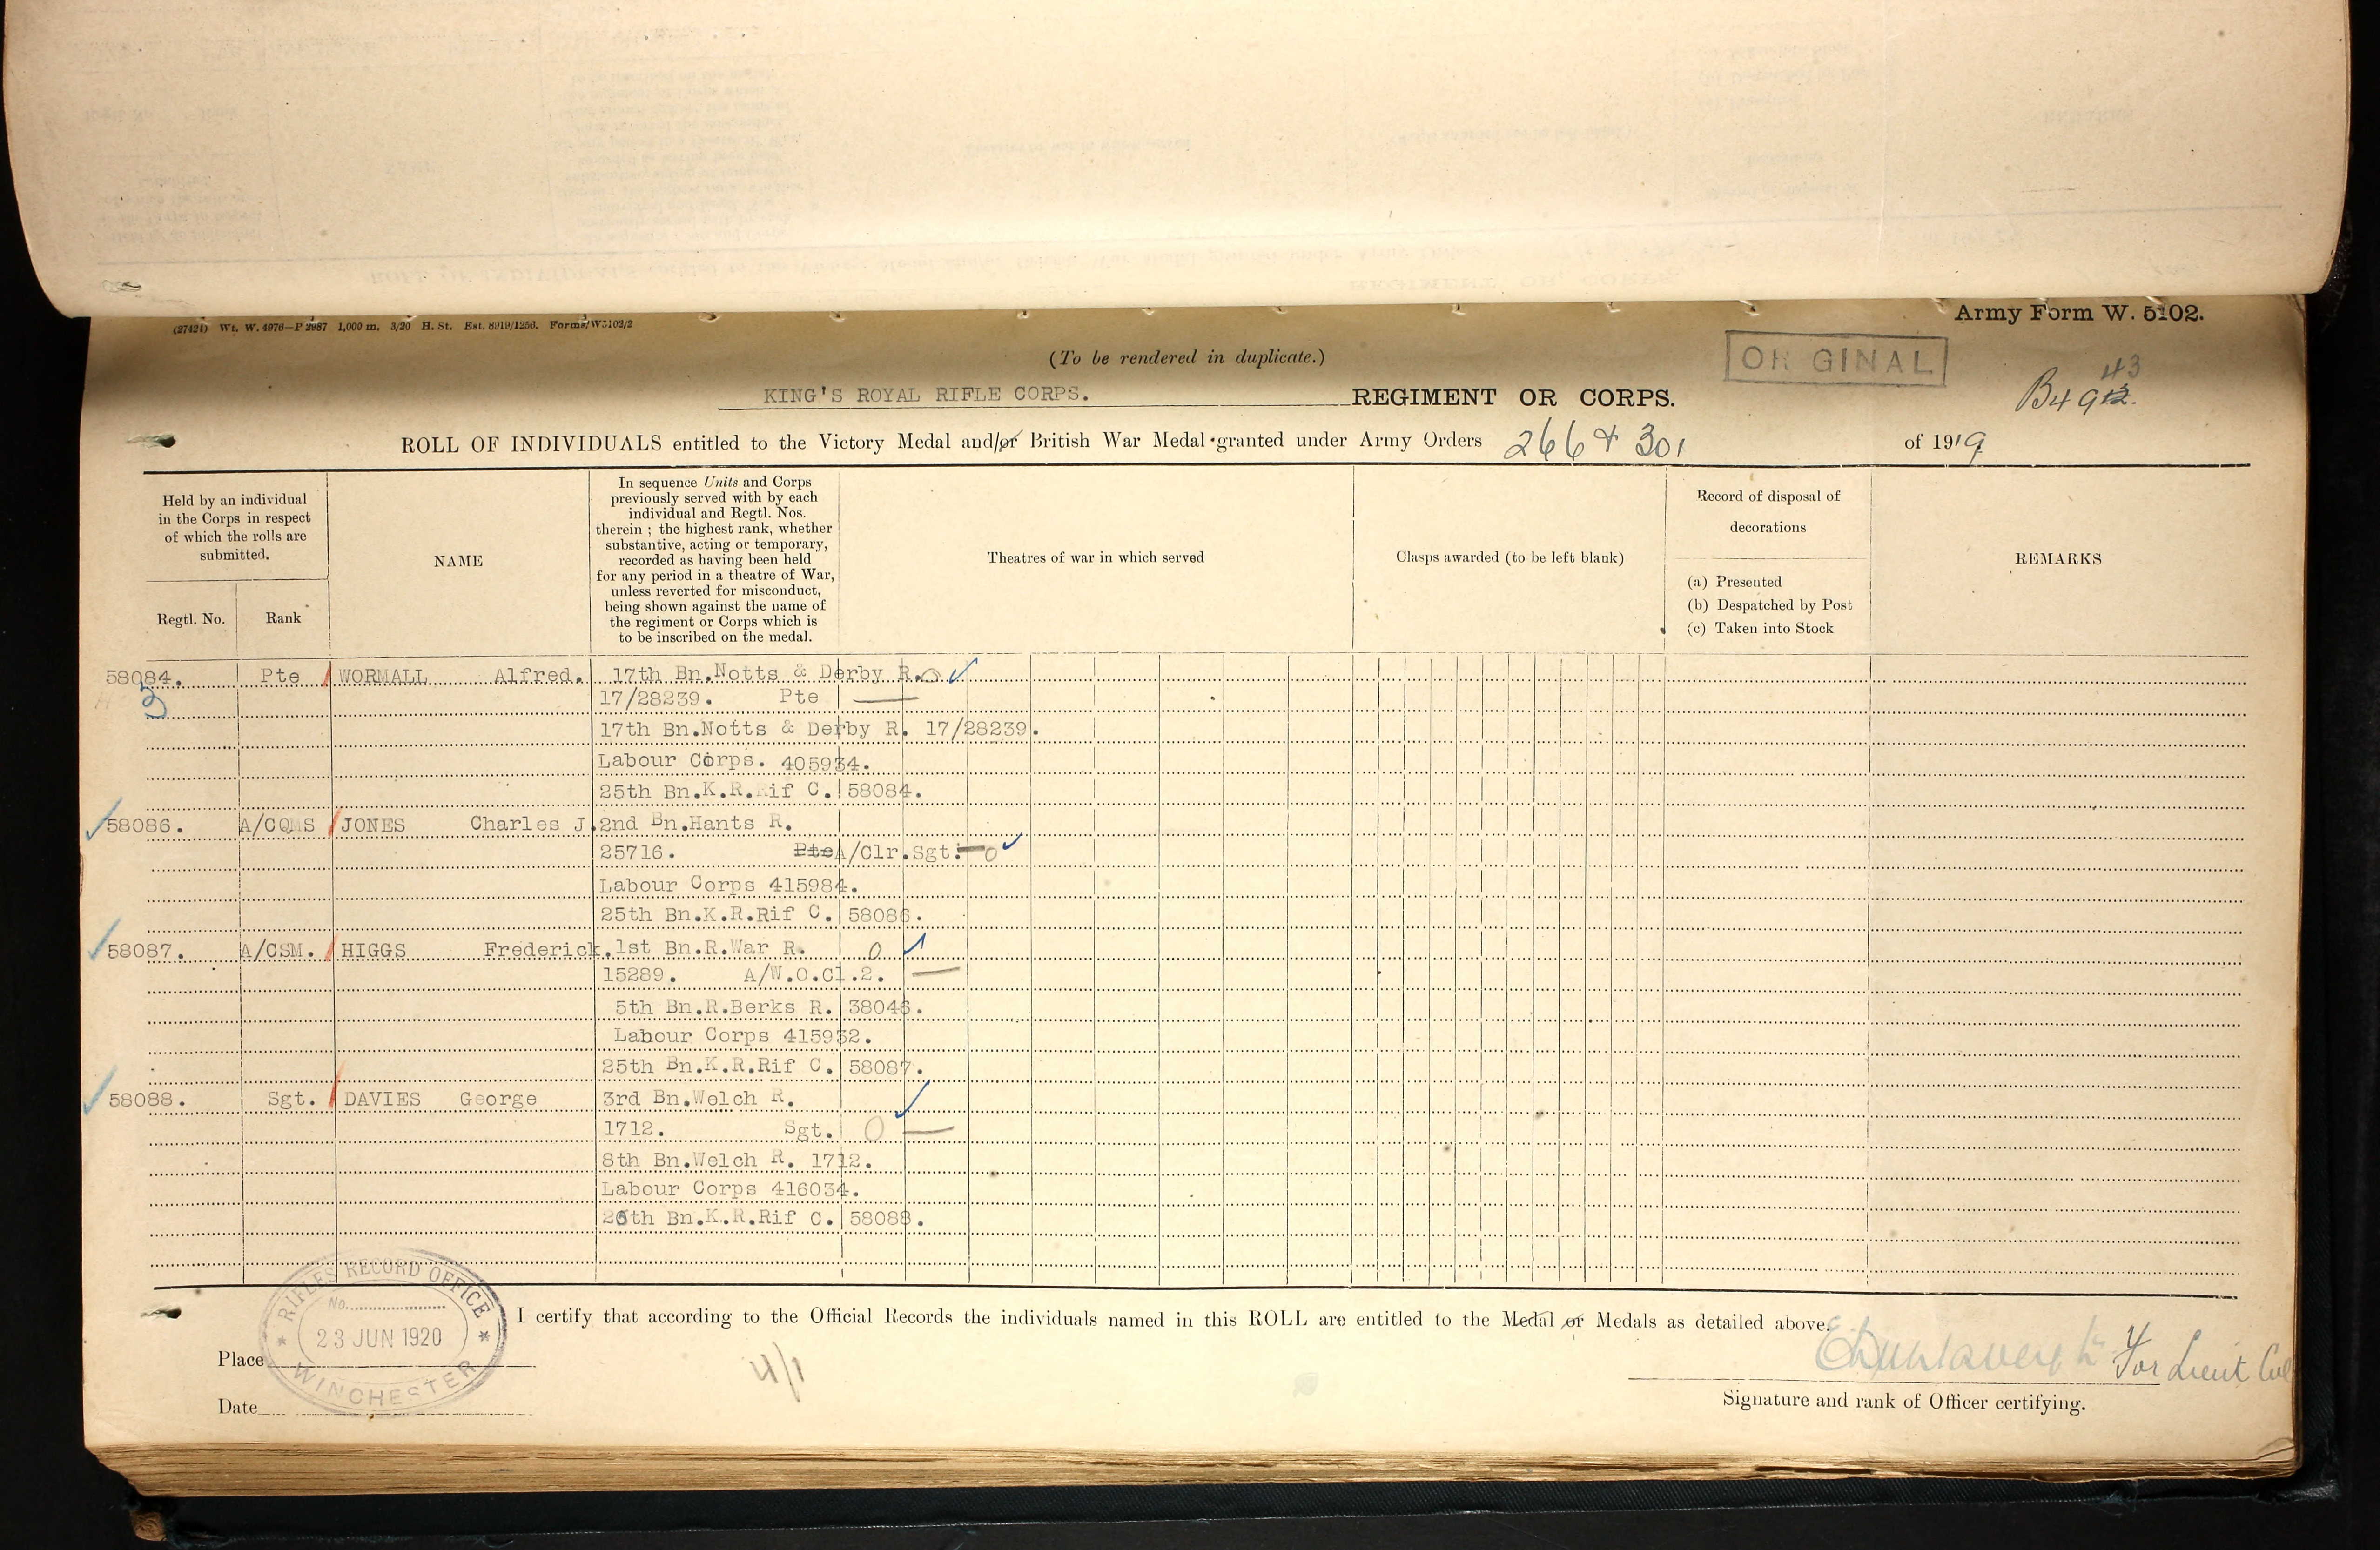 (27421) Wt. W. 4976—P 2987 1,000 m. 3/20 H. St. Est. 8919/1256. Forms/W5102/2
Army Form W. 5102.
(To be rendered in duplicate.)
ORIGINAL
KING'S ROYAL RIFLE CORPS. REGIMENT OR CORPS.
43
B4 912.
ROLL OF INDIVIDUALS entitled to the Victory Medal and/or British War Medal granted under Army Orders 266 & 301 of 1919
Held by an individual
in the Corps in respect
of which the rolls are
submitted.
Regtl. No.
Rank
NAME
In sequence Units and Corps
previously served with by each
individual and Regtl. Nos.
therein ; the highest rank, whether
substantive, acting or temporary,
recorded as having been held
for any period in a theatre of War,
unless reverted for misconduct,
being shown against the name of
the regiment or Corps which is
to be inscribed on the medal.
Theatres of war in which served
Clasps awarded (to be left blank)
Record of disposal of
decorations
(a) Presented
(b) Despatched by Post
(c) Taken into Stock
REMARKS
58084. Pte WORMALL Alfred. 17th Bn.Notts & Derby R.
3 17/28239. Pte
17th Bn.Notts & Derby R. 17/28239.
Labour Corps. 405934.
25th Bn.K.R.Rif C. 58084.
58086. A/CQMS JONES Charles J. 2nd Bn.Hants R.
25716. Pte A/Clr.Sgt.
Labour Corps 415984.
25th Bn.K.R.Rif C. 58086.
58087. A/CSM. HIGGS Frederick. 1st Bn.R.War R. 0
15289. A/W.O.Cl.2.
5th Bn.R.Berks R. 38046.
Labour Corps 415932.
25th Bn.K.R.Rif C. 58087.
58088. Sgt. DAVIES George 3rd Bn.Welch R.
1712. Sgt. 0
8th Bn.Welch R. 1712.
Labour Corps 416034.
25th Bn.K.R.Rif C. 58088.
RIFLES RECORD OFFICE
No.
23 JUN 1920
WINCHESTER
I certify that according to the Official Records the individuals named in this ROLL are entitled to the Medal or Medals as detailed above.
Place
Date
For Lieut Col
Signature and rank of Officer certifying.